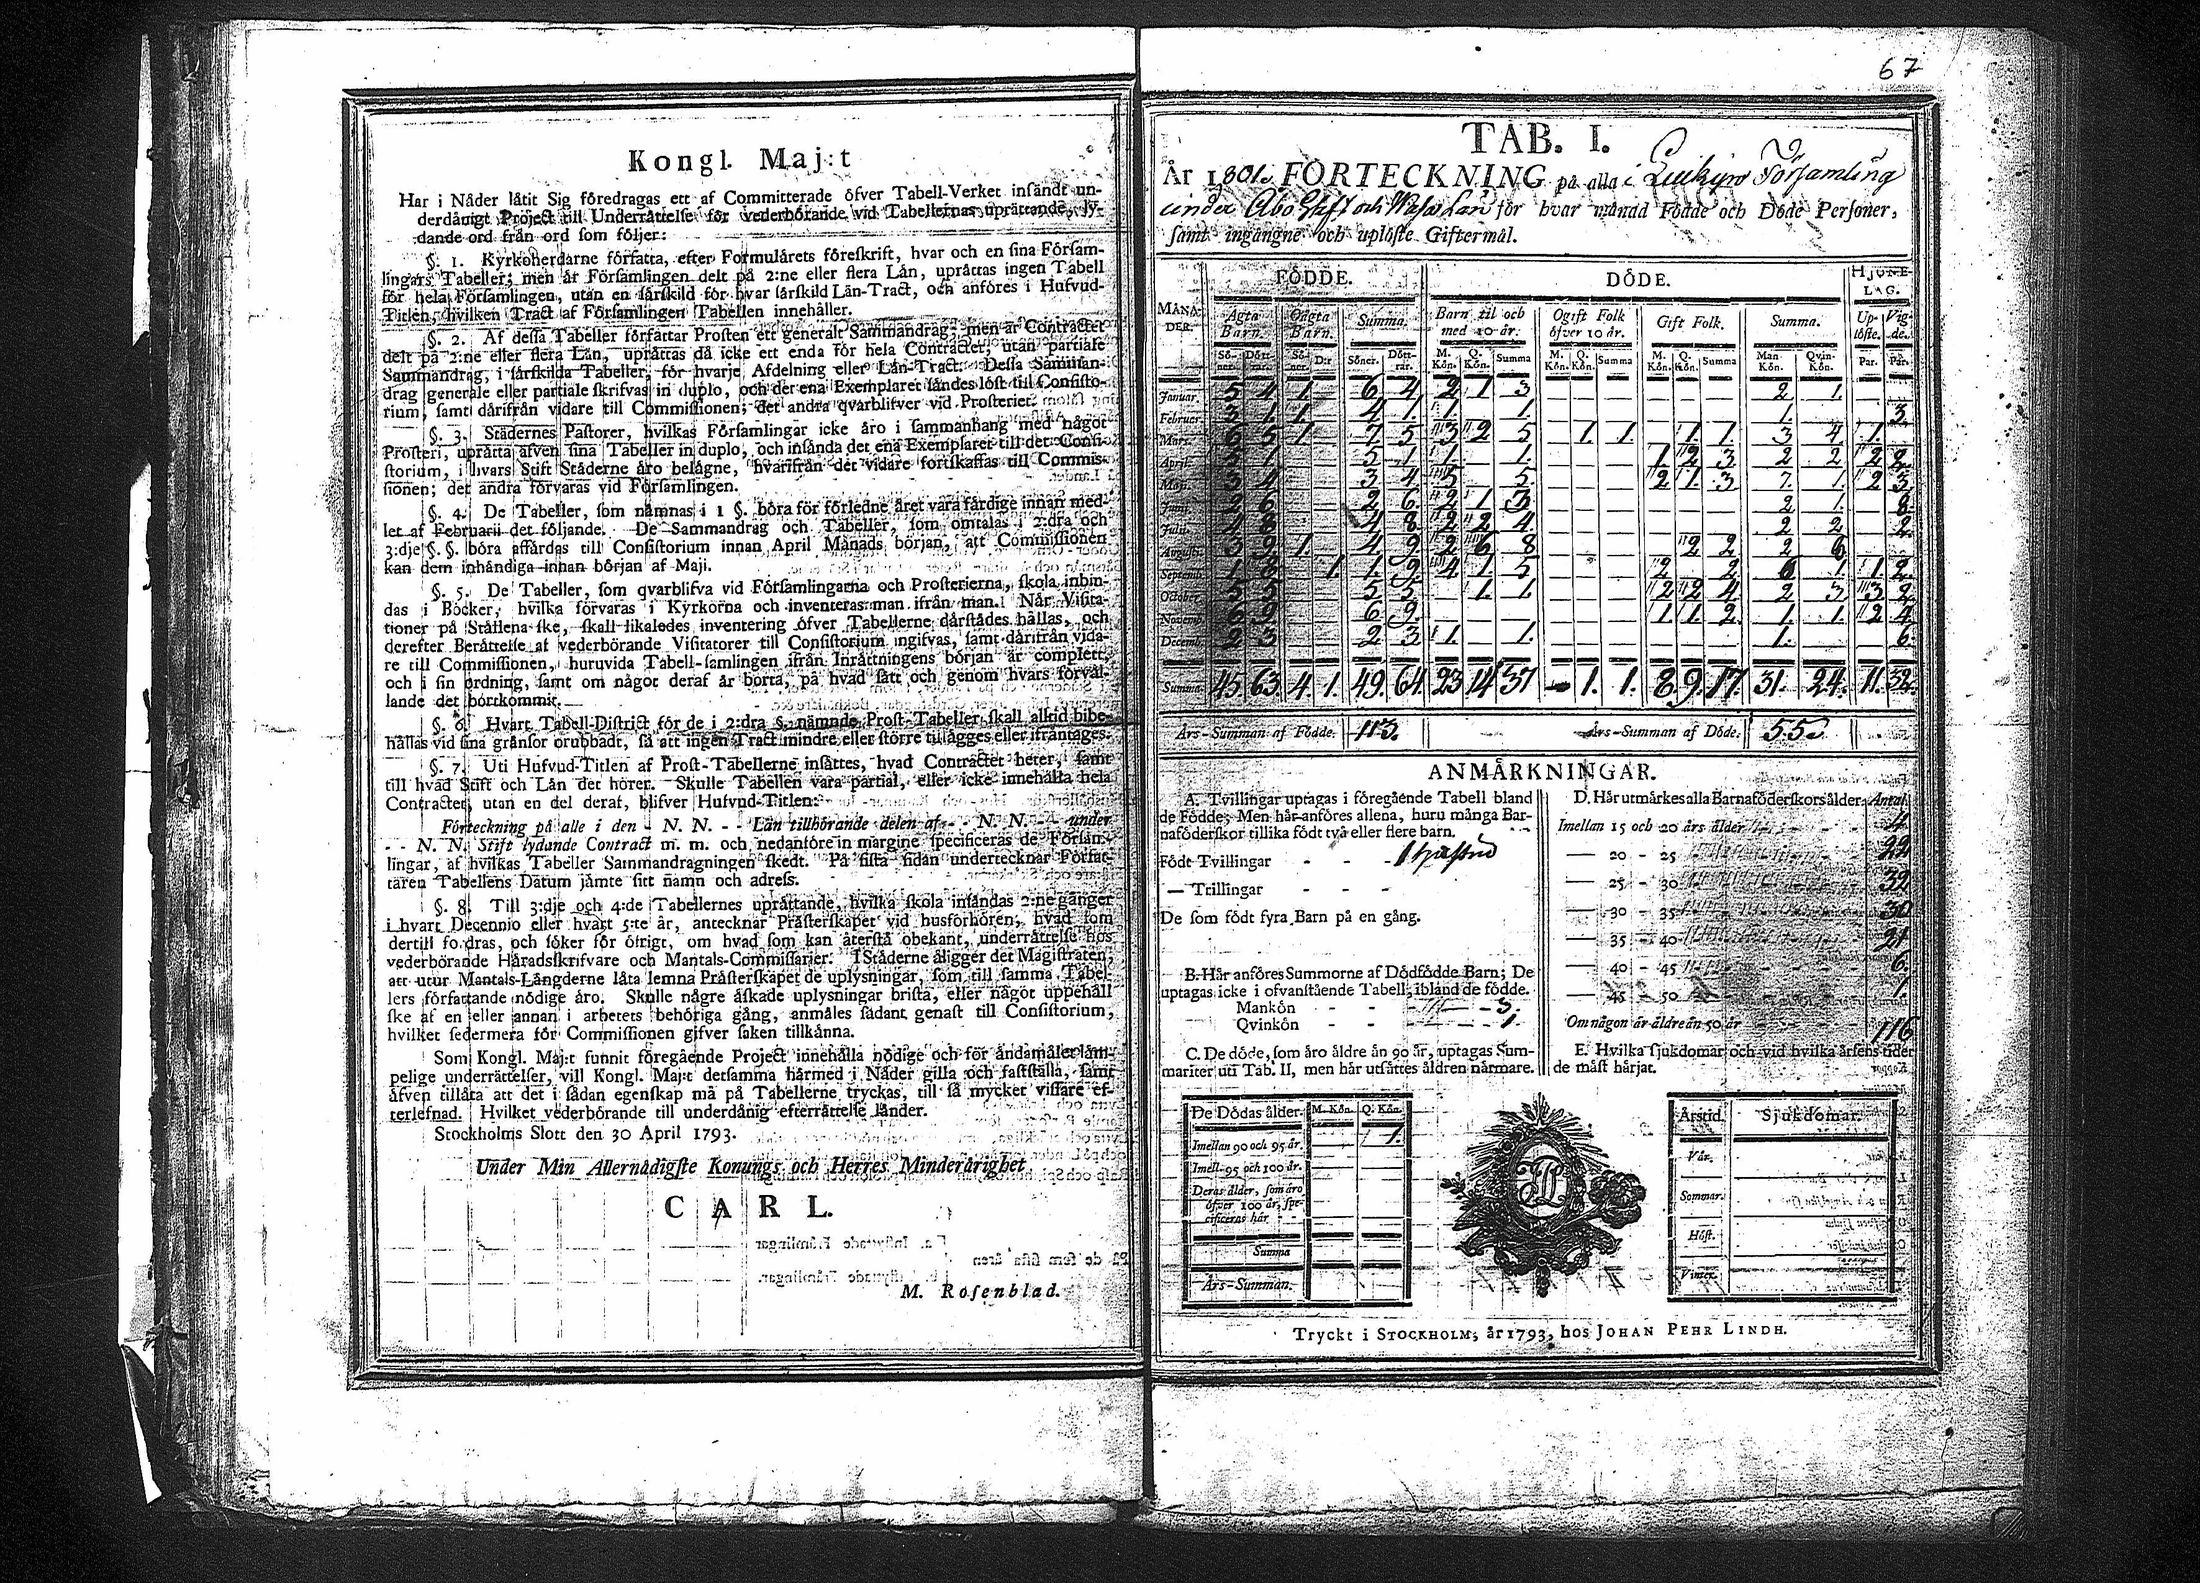 Kongl. Maj:t
Har i Nåder låtit Sig föredragas ett af Committerade öfver Tabell-Verket insändt un-
derdånigt Project till Underrättelse för vederbörande vid Tabellernas upprättande, ly-
dande ord från ord som följer:
§. 1. Kyrkoherdarne författa, efter Formulärets föreskrift, hvar och en sina Försam-
lingars Tabeller; men är Församlingen delt på 2:ne eller flera Län, upråttas ingen Tabell
för hela Församlingen, utan en särskild för hvar särskild Län-Tract, och anföres i Hufvud-
Titlen, hvilken Tract af Församlingen Tabellen innehåller.
§. 2. Af dessa Tabeller författar Prosten ett generalt Sammandrag; men är Contractet
delt på 2:ne eller flera Län, upråttas då icke ett enda för hela Contractet, utan partiale
Sammandrag, i särskilda Tabeller, för hvarje Afdelning eller Län-Tract. Dessa Samman-
drag generale eller partiale skrifvas in duplo, och det ena Exemplaret sändes löst till Consisto-
rium, samt därifrån vidare till Commissionen; det andra qvarblifver vid Prosteriet.
§. 3. Städernes Pastorer, hvilkas Församlingar icke äro i sammanhang med något
Prosteri, upråtta äfven sina Tabeller in duplo, och insända det ena Exemplaret till det Consi-
storium, i hvars Stift Städerne äro belägne, hvarifrån det vidare fortskaffas till Commis-
sionen; det andra förvaras vid Församlingen.
§. 4. De Tabeller, som nämnas i 1 §. böra för förledne året vara färdige innan med-
let af Februarii det följande. De Sammandrag och Tabeller, som omtalas i 2:dra och
3:dje §. §. böra affärdas till Consistorium innan April Månads början, att Commissionen
kan dem inhändiga innan början af Maji.
§. 5. De Tabeller, som qvarblifva vid Församlingarna och Prosterierna, skola inbin-
das i Böcker, hvilka förvaras i Kyrkorna och inventeras man ifrån man. När Visita-
tioner på Ställena ske, skall likaledes inventering öfver Tabellerne därstädes hållas, och
derefter Berättelse af vederbörande Visitatorer till Consistorium ingifvas, samt därifrån vida-
re till Commissionen, huruvida Tabell-samlingen ifrån Inrättningens början är complett,
och i sin ordning, samt om något deraf är borta, på hvad sätt och genom hvars förvål-
lande det bortkommit.
§. 6. Hvart Tabell-District för de i 2:dra §. nämnde Prost-Tabeller skall alltid bibe-
hållas vid sina gränsor orubbadt, så att ingen Tract mindre eller större tillägges eller ifråntages.
§. 7. Uti Hufvud-Titlen af Prost-Tabellerne insättes, hvad Contractet heter, samt
till hvad Stift och Län det hörer. Skulle Tabellen vara partial, eller icke innehålla hela
Contractet, utan en del deraf, blifver Hufvud-Titlen:
Förteckning på alle i den - N. N. - - Län tillhörande delen af - - N. N. - - under
- - N. N. Stift lydande Contract m. m. och nedanföre in margine specificeras de Försam-
lingar, af hvilkas Tabeller Sammandragningen skedt. På sista sidan undertecknar Förfat-
taren Tabellens Datum jämte sitt namn och adress.
§. 8. Till 3:dje och 4:de Tabellernes upråttande, hvilka skola insändas 2:ne gånger
i hvart Decennio eller hvart 5:te år, antecknar Prästerskapet vid husförhören, hvad som
dertill fordras, och söker för öfrigt, om hvad som kan återstå obekant, underrättelse hos
vederbörande Häradsskrifvare och Mantals-Commissarier. I Städerne åligger det Magistraten,
att utur Mantals-Längderne låta lemna Prästerskapet de uplysningar, som till samma Tabel-
lers författande nödige äro. Skulle några äskade uplysningar brista, eller något uppehåll
ske af en eller annan i arbetets behöriga gång, anmäles sådant genast till Consistorium,
hvilket sedermera för Commissionen gifver saken tillkänna.
Som Kongl. Maj:t funnit föregående Project innehålla nödige och för ändamålet läm-
pelige underrättelser, vill Kongl. Maj:t detsamma härmed i Nåder gilla och fastställa, samt
äfven tillåta att det i sådan egenskap må på Tabellerne tryckas, till så mycket vissare ef-
terlefnad. Hvilket vederbörande till underdånig efterrättelse länder.
Stockholms Slott den 30 April 1793.
Under Min Allernådigste Konungs och Herres Minderårighet
CARL.
M. Rosenblad.
67
TAB. I.
År 1801. FÖRTECKNING på alla i Församling
under Åbo Stift och Wasa Län för hvar månad Födde och Döde Personer,
samt ingångne och uplöste Giftermål.
FÖDDE. DÖDE. HJONE-LAG.
MÅNADER. Ägta Barn. Oägta Barn. Summa. Barn til och med 10 år. Ogift Folk öfver 10 år. Gift Folk. Summa. Uplöste. Vigde.
Söner. Döttrar. Söner. D:r Söner. Döttrar. M. Kön. Q. Kön. Summa M. Kön. Q. Kön. Summa M. Kön. Q. Kön. Summa Man Kön. Qvin Kön. Par. Par.
Januar. 5 4 1. 6 4 2 1 3 2 1.
Februar. 3 1 1 4 1. 1 1. 1. 3
Mars. 6 5 1. 7 5 3 2 5 1. 1. 1. 1. 3 4 1.
April. 5 1 5 1 1 1. 1 2 3 2 2 2 2
Maji. 3 4 3 4 5 5. 2 1. 3 7. 1. 2 3
Junii 2 6 2 6. 2 1 3 2 1. 8
Julii. 4 8 4 8 2 2 4 2 2 2.
August. 3 9 1. 4 9. 2 6 8 2 2 2 8
Septemb. 1 8 1. 1. 9 4 1 5 2 2 6 1. 1 2.
October. 5 5 5 5 1. 1. 2 2 4 2 3 3 2
Novemb. 6 9 6 9. 1 1 2. 1. 1. 2 4
Decemb. 2 3 2 3 1. 1. 1. 6
Summa 45. 63. 4. 1. 49. 64. 23. 14. 37 - 1. 1. 8. 9. 17. 31. 24. 11. 32.
Års-Summan af Födde. 113. Års-Summan af Döde. 55
ANMÄRKNINGAR.
A. Tvillingar uptagas i föregående Tabell bland
de Födde; Men här anföres allena, huru många Bar-
naföderskor tillika födt två eller flere barn.
Födt Tvillingar - - - 1 hustru
— Trillingar - - -
De som födt fyra Barn på en gång.
B. Här anföres Summorne af Dödfödde Barn; De
uptagas icke i ofvanstående Tabell, ibland de födde.
Mankön - - 3.
Qvinkön - - 1.
C. De döde, som äro äldre än 90 år, uptagas Sum-
mariter uti Tab. II, men här utsättes åldren närmare.
D. Här utmärkes alla Barnaföderskors ålder. Antal
Imellan 15 och 20 års ålder 4
— 20 - 25 22
— 25 - 30 32
— 30 - 35 30
— 35 - 40 21
— 40 - 45 6.
— 45 - 50 1
Om någon är äldre än 50 år
116
E. Hvilka sjukdomar och vid hvilka årsens tider
de mäst härjat.
De Dödas ålder. M. Kön. Q. Kön.
Imellan 90 och 95 år. 1.
Imell. 95 och 100 år.
Deras ålder, som äro
öfver 100 år, spe-
cificeras här - -
Summa
Års-Summan.
Årstid. Sjukdomar.
Vår.
Sommar.
Höst.
Vinter.
Tryckt i STOCKHOLM, år 1793, hos JOHAN PEHR LINDH.